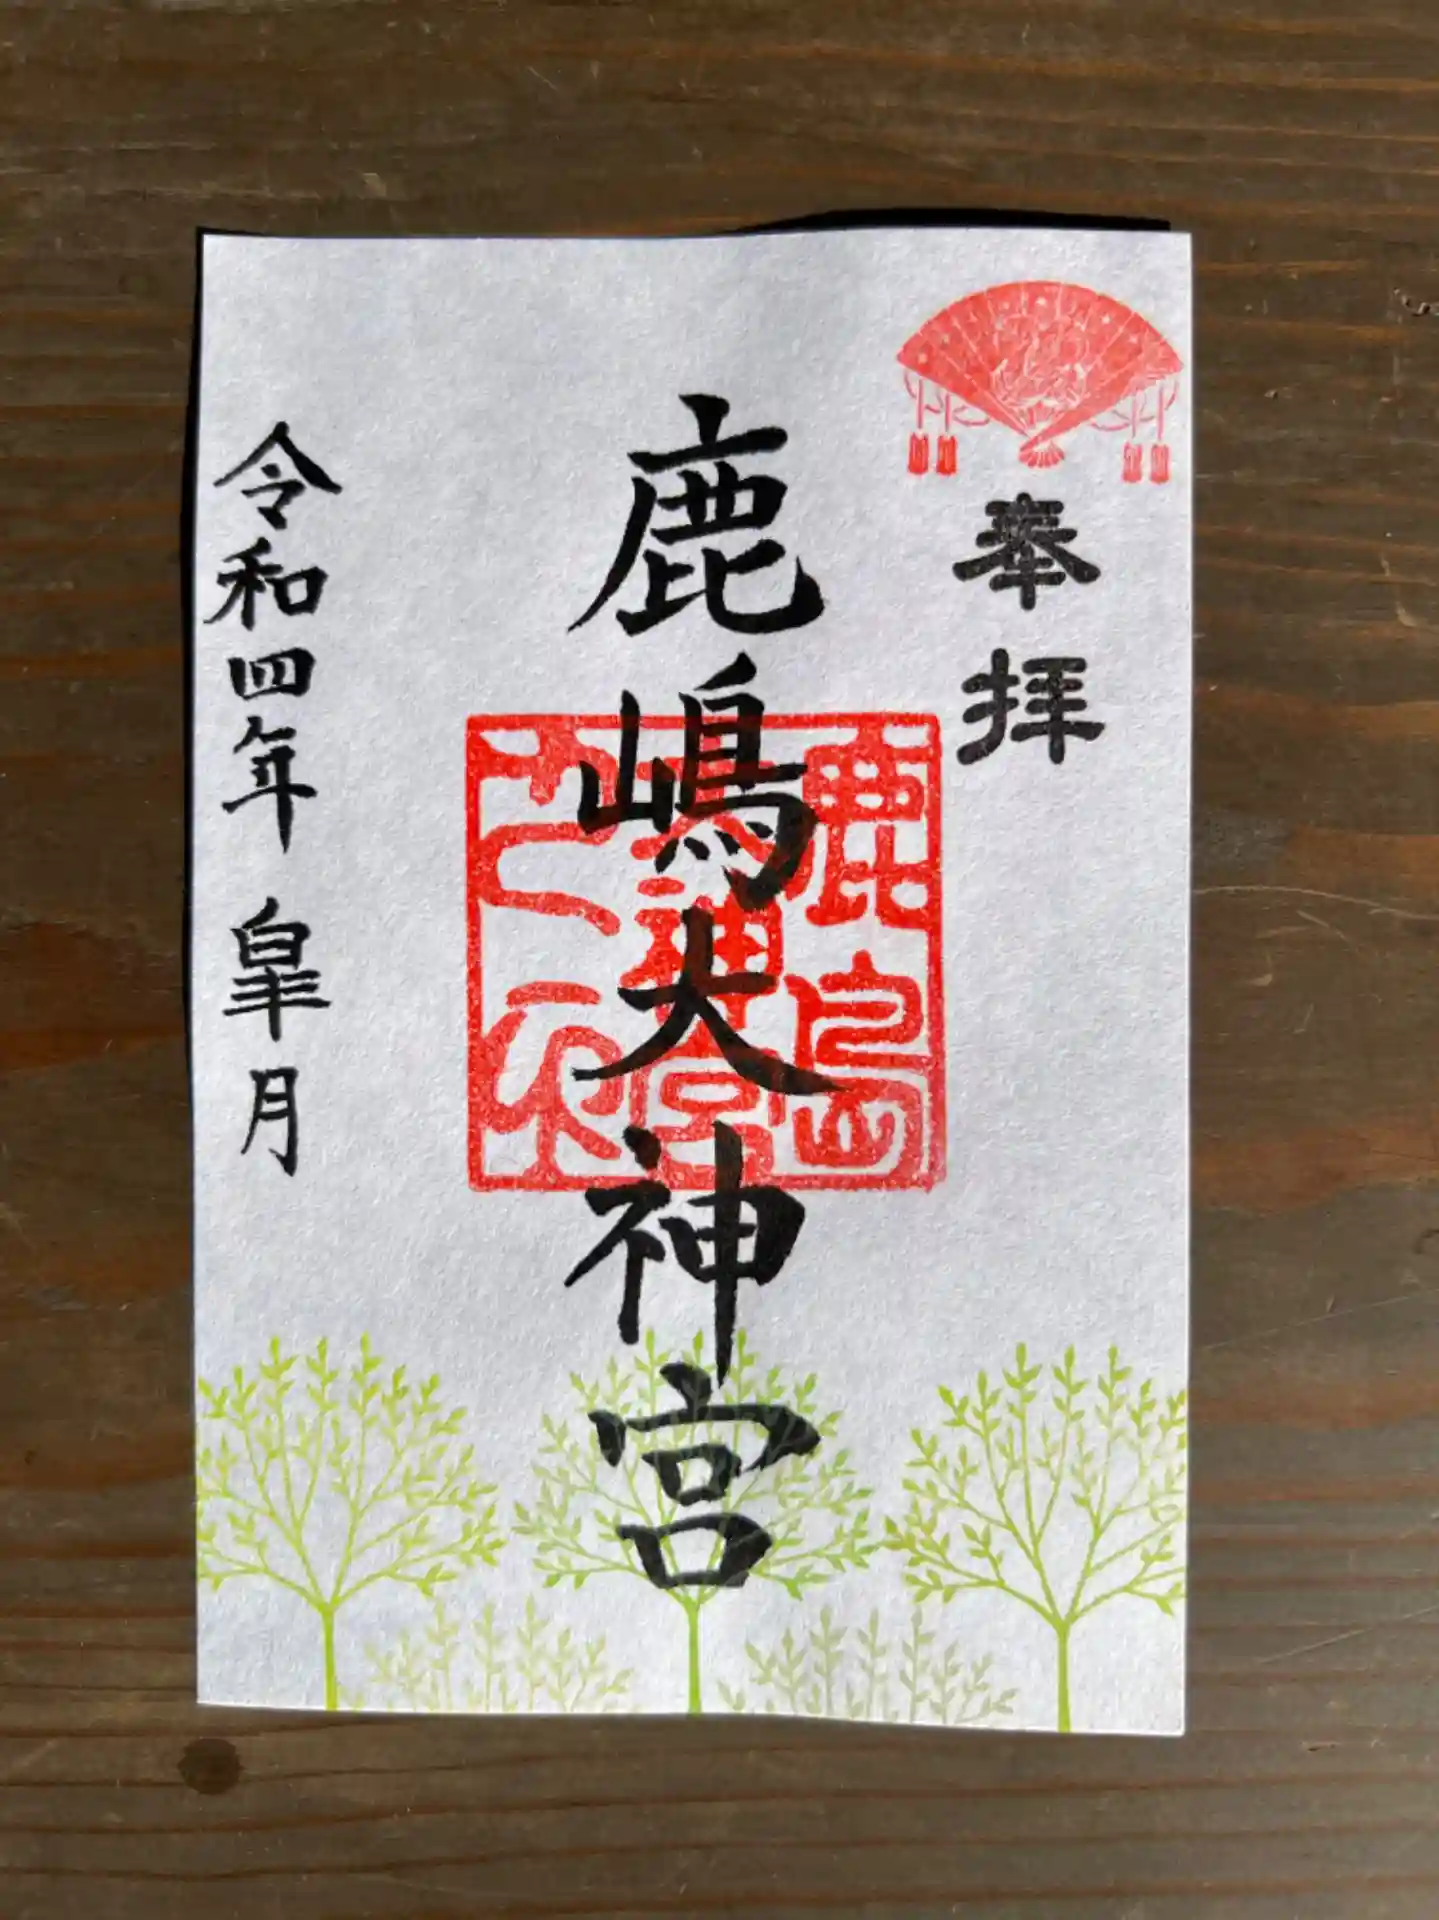 奉拝
鹿嶋大神宮
鹿島
神宮
之印
令和四年 皐月